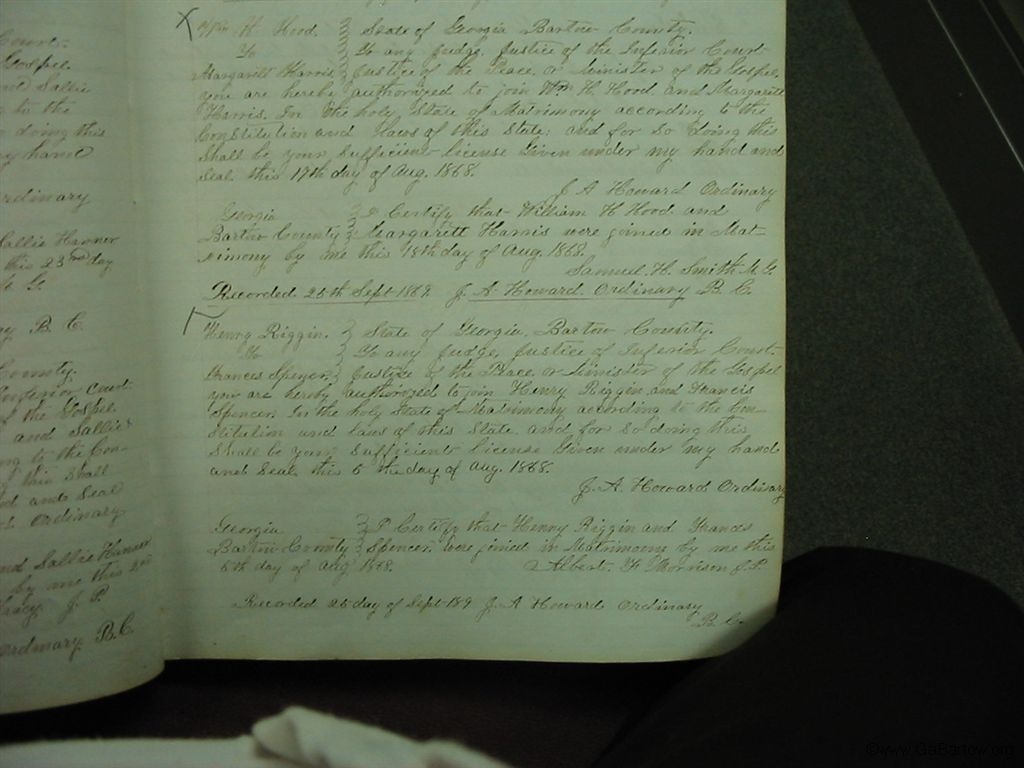 Court.
Gospel.
Sallie
to the
doing this
hand
Ordinary
Sallie Hanner
this 23rd day
B. C.
County.
Inferior Court
of the Gospel
and Sallie
to the Con-
of this Shall
and Seal
Ordinary
and Sallie Hanner
by me this
J. P.
Ordinary B. C.
X Wm H Hood } State of Georgia Bartow County.
To } To any Judge, Justice of the Inferior Court
Margarett Harris } Justice of the Peace, or Minister of the Gospel,
you are hereby authorized to join Wm H. Hood and Margarett
Harris, In the holy State of Matrimony according to the
Constitution and Laws of this State; and for so doing this
Shall be your Sufficient License Given under my hand and
Seal this 17th day of Aug. 1868.
J. A Howard Ordinary
Georgia } I Certify that William H Hood and
Bartow County } Margarett Harris were joined in Mat-
rimony by me this 18th day of Aug 1868.
Samuel H. Smith M. G.
Recorded 25th Sept 1869 J. A Howard Ordinary B. C.
Henry Riggin. } State of Georgia, Bartow County.
To } To any Judge, Justice of Inferior Court.
Frances Spencer } Justice of the Peace or Minister of the Gospel
you are hereby authorized to join Henry Riggin and Francis
Spencer. In the holy State of Matrimony according to the Con-
stitution and laws of this State. and for so doing this
Shall be your Sufficient License Given under my hand
and Seal this 5 the day of Aug. 1868.
J. A. Howard Ordinary
Georgia } I Certify that Henry Riggin and Frances
Bartow County } Spencer. were joined in Matrimony by me this
5th day of Aug 1868. Albert. Morrison J. P.
Recorded 25 day of Sept 189 J. A Howard Ordinary
B. C.
©www.GaBartow.org